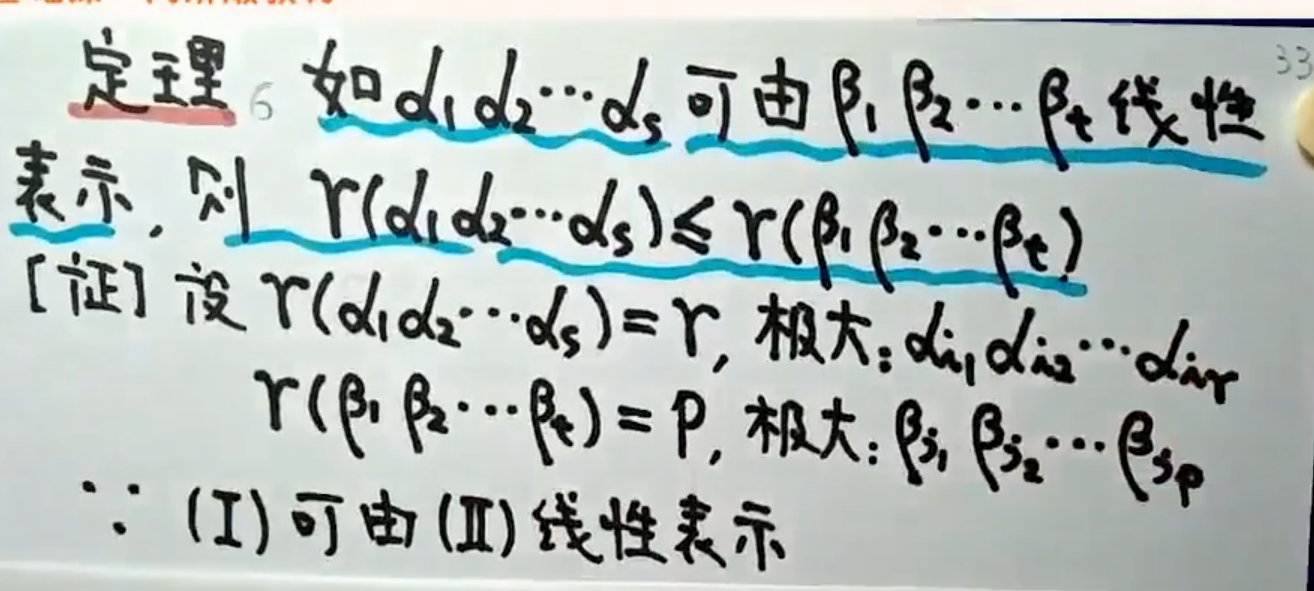 定理6 如α₁α₂⋯αₛ可由β₁β₂⋯βₜ线性
33
表示,则 r(α₁α₂⋯αₛ)≤r(β₁β₂⋯βₜ)
[证] 设 r(α₁α₂⋯αₛ)=r, 极大:αᵢ₁αᵢ₂⋯αᵢᵣ
r(β₁β₂⋯βₜ)=p, 极大:βⱼ₁βⱼ₂⋯βⱼₚ
∵ (I)可由(II)线性表示